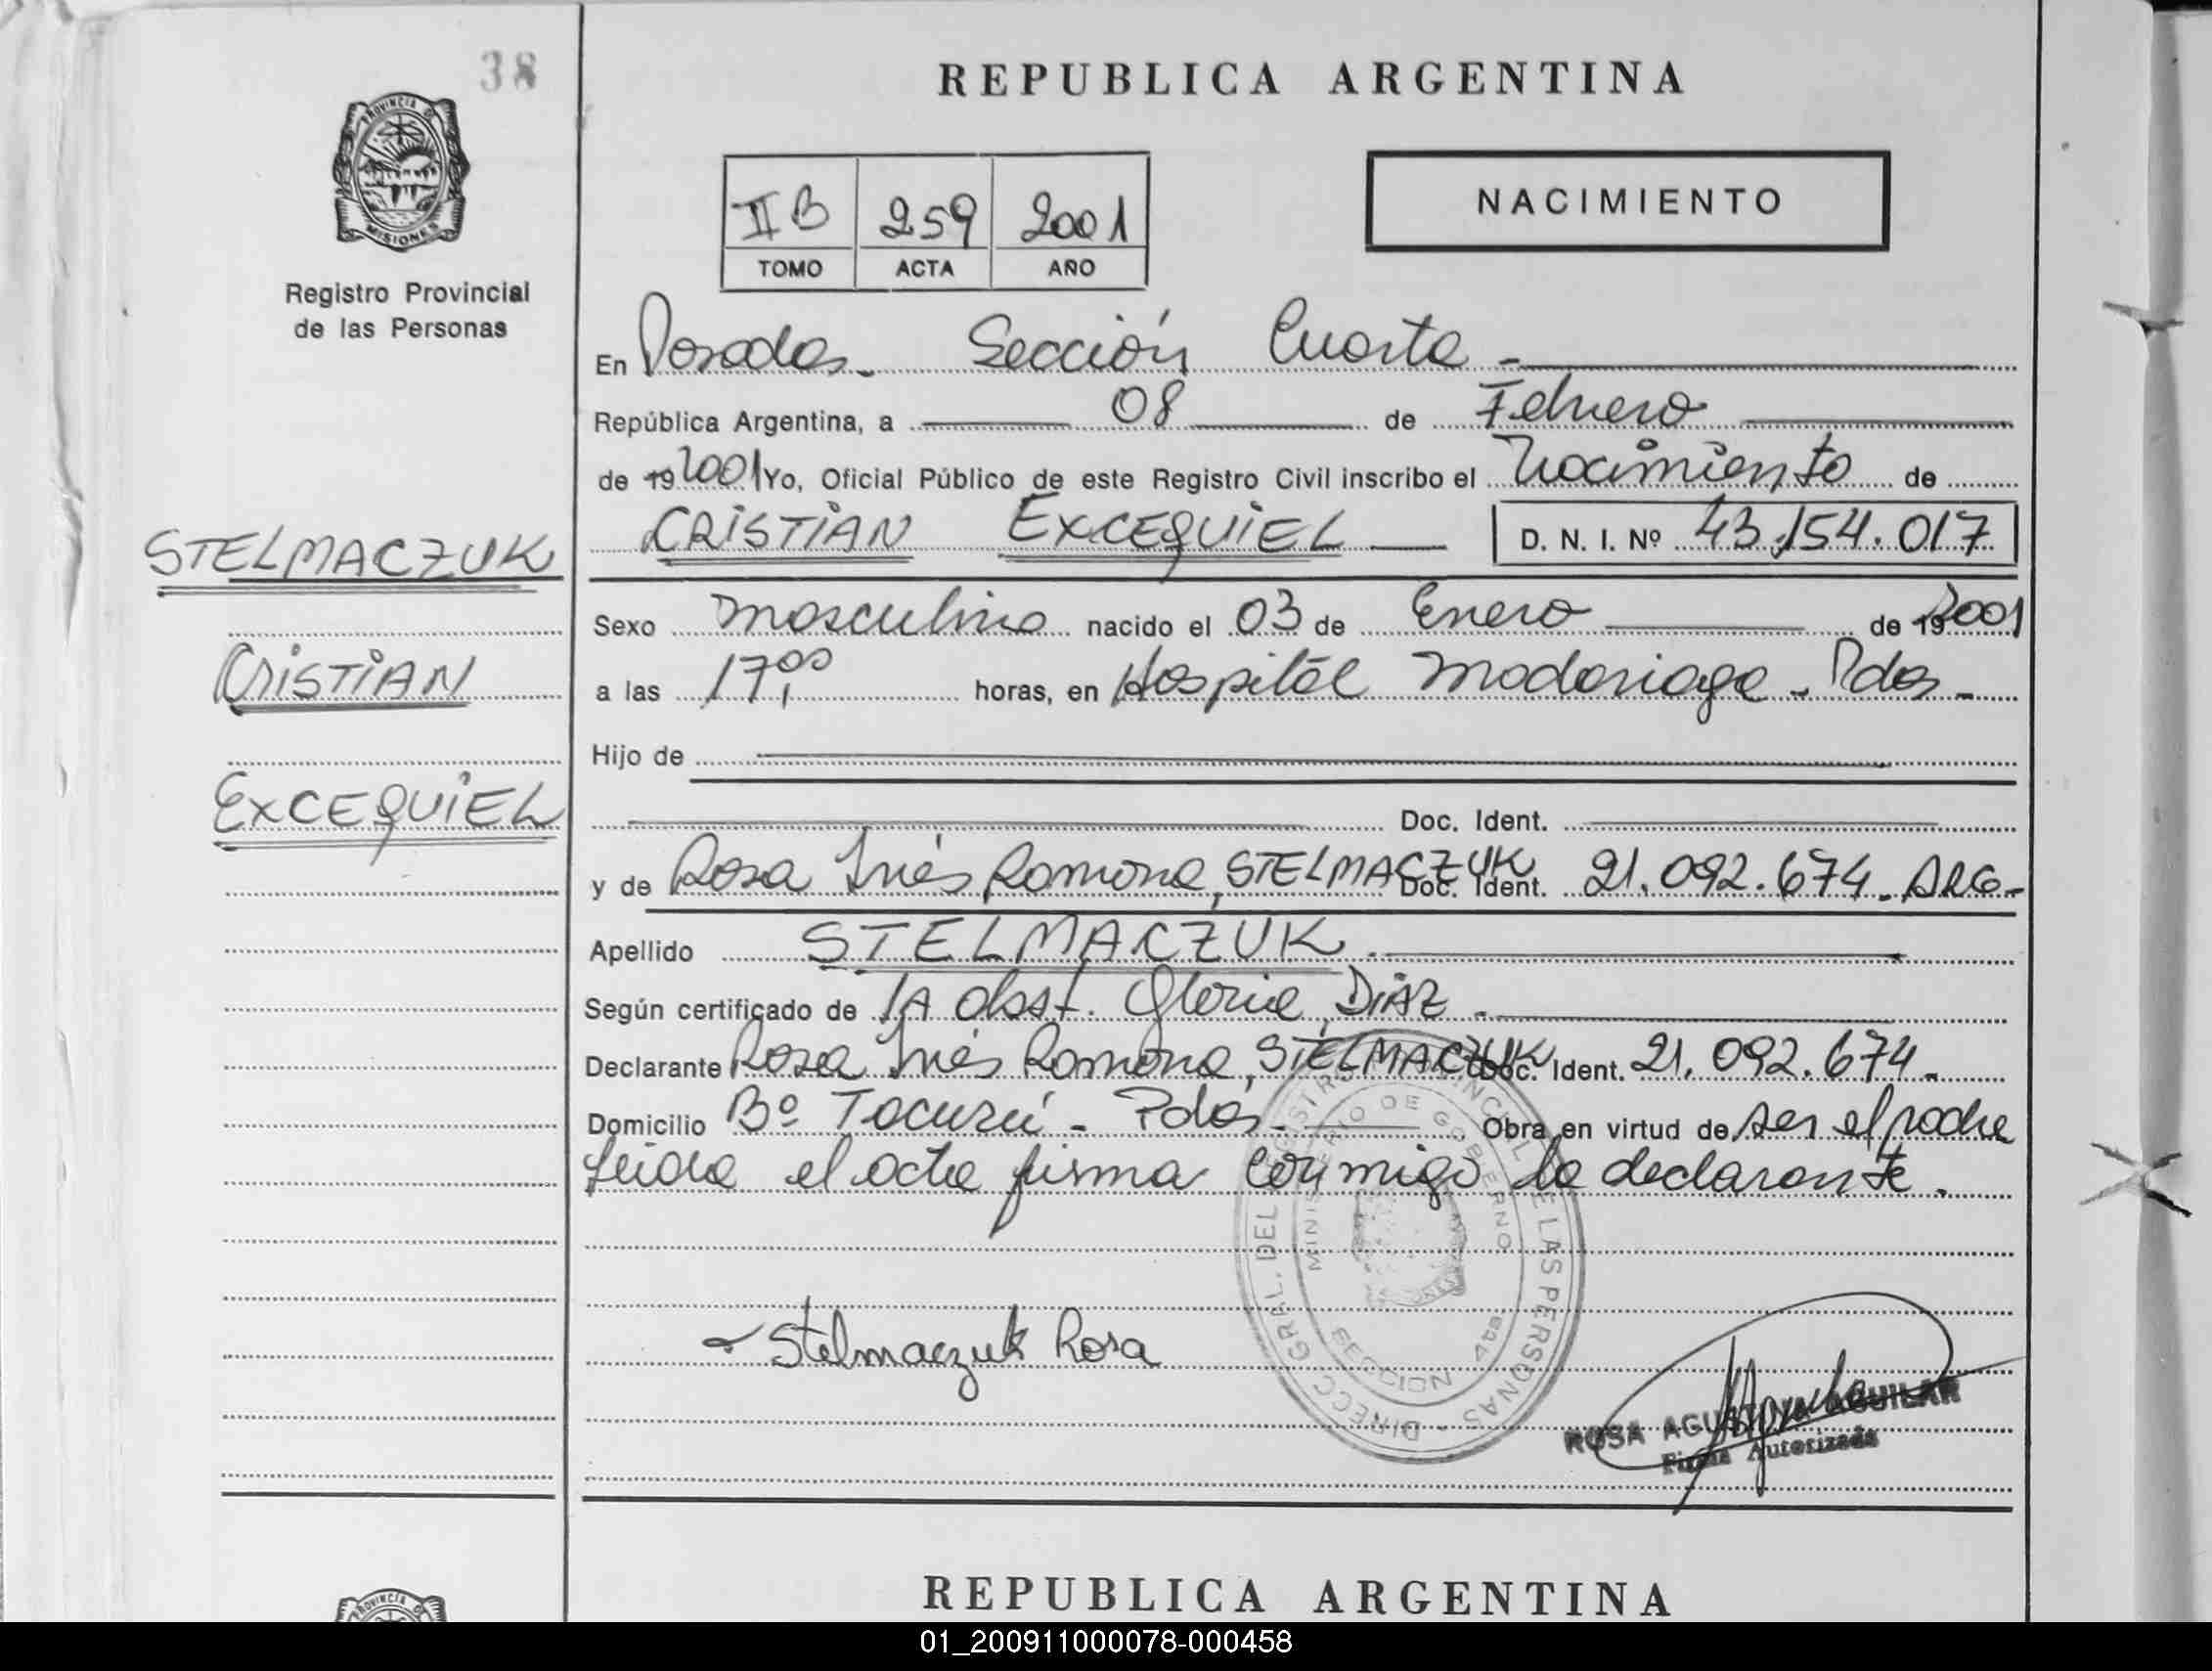 38
PROVINCIA D
MISIONES
Registro Provincial
de las Personas
REPUBLICA ARGENTINA
NACIMIENTO
II B 259 2001
TOMO ACTA AÑO
En Posadas - Sección Cuarta -
República Argentina, a 08 de Febrero
de 19 2001 Yo, Oficial Público de este Registro Civil inscribo el Nacimiento de
CRISTIAN EXCEQUIEL D. N. I. Nº 43.154.017
STELMACZUK
CRISTIAN
EXCEQUIEL
Sexo masculino nacido el 03 de Enero de 19 2001
a las 17,00 horas, en Hospital Madariaga - Pdas -
Hijo de
Doc. Ident.
y de Rosa Inés Ramona, STELMACZUK Doc. Ident. 21.092.674 - ARG -
Apellido STELMACZUK.
Según certificado de la obst. Gloria, DIAZ -
Declarante Rosa Inés Ramona, STELMACZUK Doc. Ident. 21.092.674 -
Domicilio Bº Tacurú - Pdas - Obra en virtud de ser el
Leida el acta firma conmigo la declarante.
DIRECC. GRAL. DEL REGISTRO PROVINCIAL DE LAS PERSONAS
MINISTERIO DE GOBERNO
SECCION 4ta
Stelmaczuk Rosa
ROSA AGUSTINA AGUILAR
Firma Autorizada
PROVINCIA D
REPUBLICA ARGENTINA
01_200911000078-000458